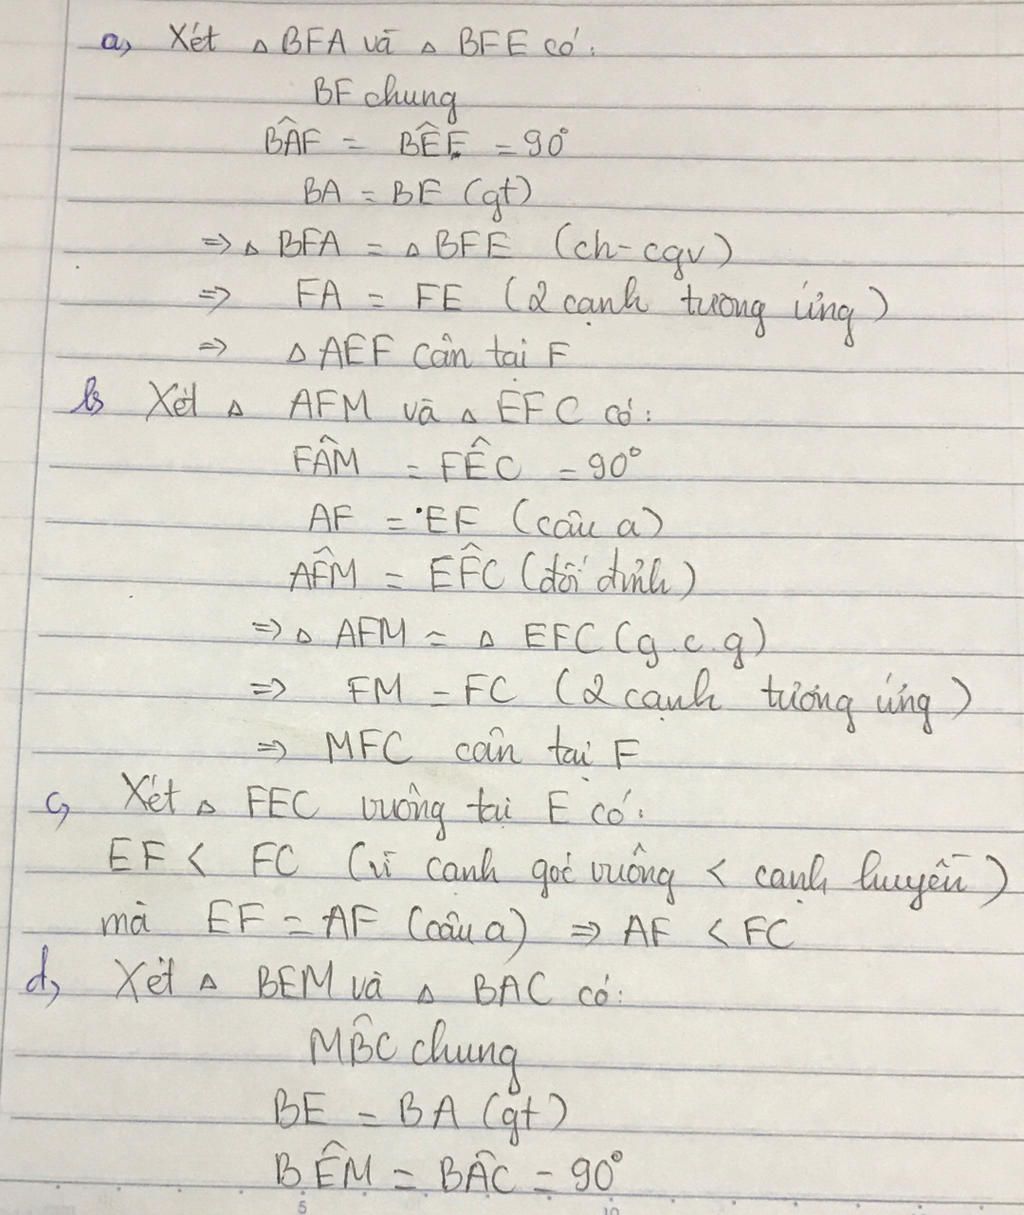 a, Xét △ BFA và △ BFE có:
BF chung
BÂF = BÊF = 90°
BA = BE (gt)
=> △ BFA = △ BFE (ch-cgv)
=> FA = FE (2 cạnh tương ứng)
=> △ AEF cân tại F
b, Xét △ AFM và △ EFC có:
FÂM = FÊC = 90°
AF = EF (câu a)
AF̂M = EF̂C (đối đỉnh)
=> △ AFM = △ EFC (g.c.g)
=> FM = FC (2 cạnh tương ứng)
=> MFC cân tại F
c, Xét △ FEC vuông tại E có:
EF < FC (vì cạnh góc vuông < cạnh huyền)
mà EF = AF (câu a) => AF < FC
d, Xét △ BEM và △ BAC có:
MB̂C chung
BE = BA (gt)
BÊM = BÂC = 90°
5 10